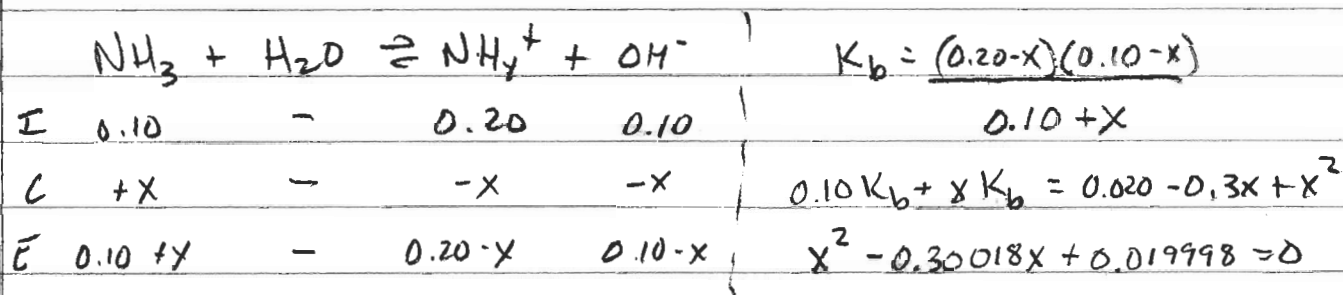 NH₃ + H₂O ⇌ NH₄⁺ + OH⁻
I 0.10 - 0.20 0.10
C +x - -x -x
E 0.10 +x - 0.20-x 0.10-x
Kb = (0.20-x)(0.10-x)
0.10 +x
0.10 Kb + x Kb = 0.020 -0.3x + x²
x² - 0.30018x + 0.019998 = 0